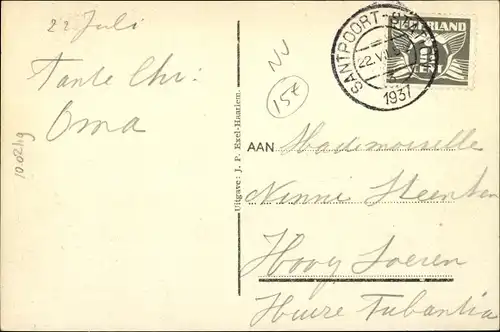 22 Juli
Tante Chr:
Oma
10.02hg
Uitgave: J. P. Exel-Haarlem.
NV
15€
SANTPOORT-
22.VII
1937
NEDERLAND
CENT
AAN Mademoiselle
Ninni Heenken
Hoog Soeren
Huize Tubantia